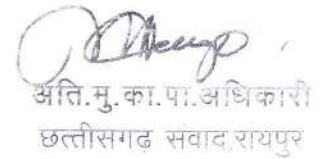 अति.मु.का.पा.अधिकारी
छत्तीसगढ संवाद,रायपुर